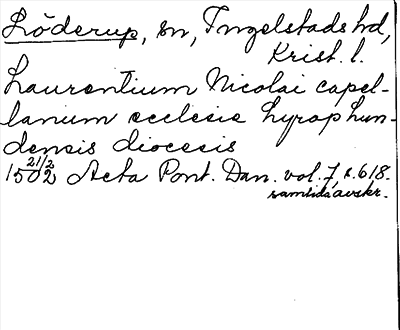 Löderup, sn, Ingelstads hd,
Krist. l.
Laurentium Nicolai capel-
lanum ecclesie Lyrophun-
densis diocesis
21/2
1502 Acta Pont. Dan. vol. 7, s. 618.
samtida avskr.